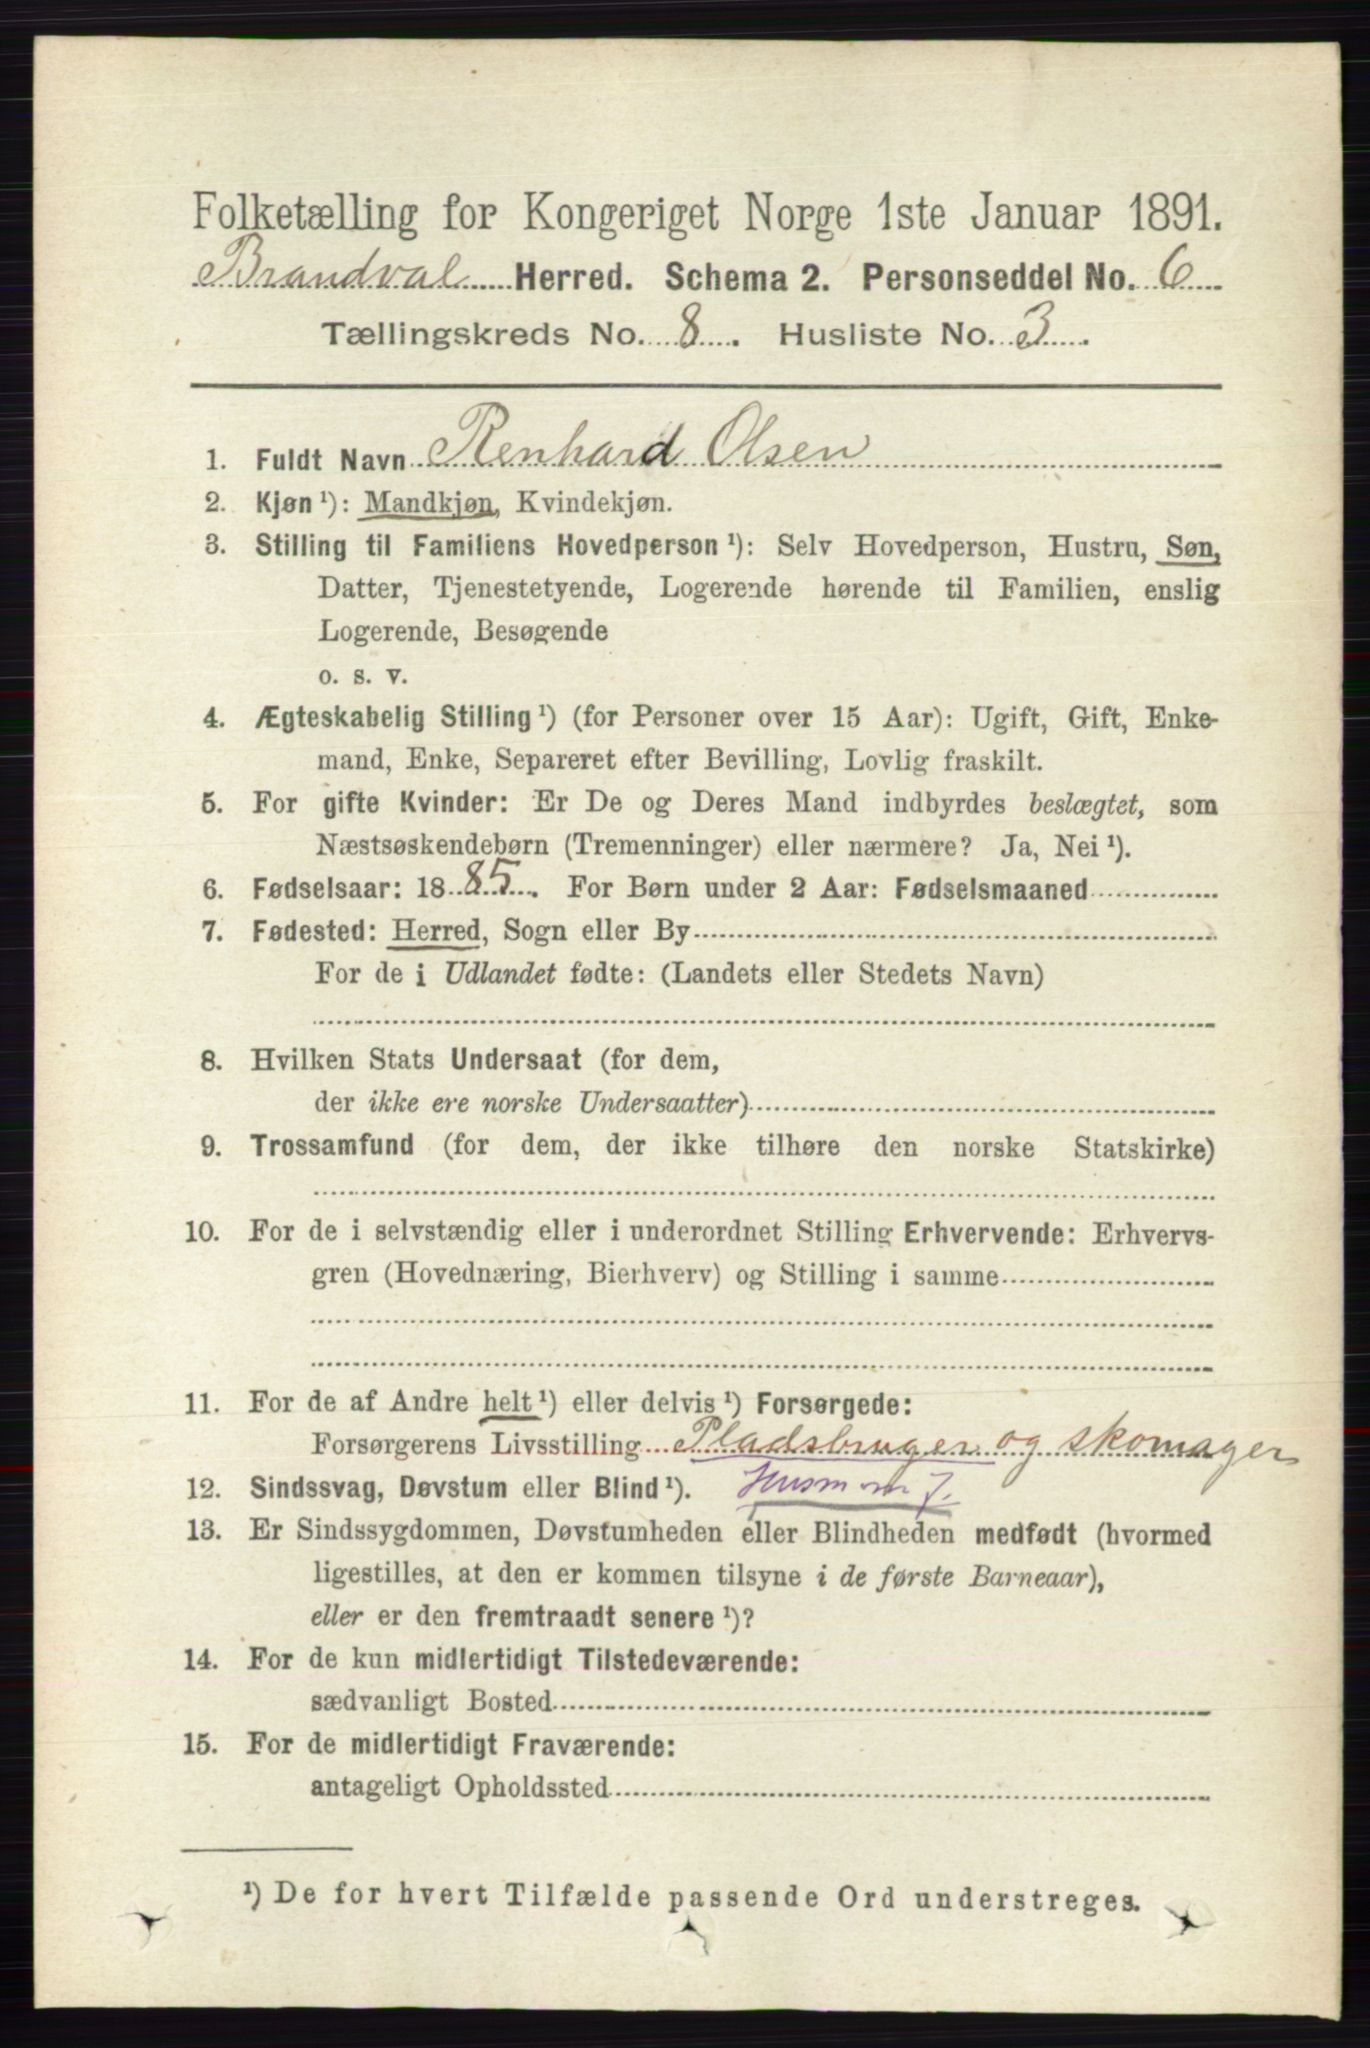 Folketælling for Kongeriget Norge 1ste Januar 1891.
Brandval Herred. Schema 2. Personseddel No. 6
Tællingskreds No. 8. Husliste No. 3.
1. Fuldt Navn Renhard Olsen
2. Kjøn¹): Mandkjøn, Kvindekjøn.
3. Stilling til Familiens Hovedperson¹): Selv Hovedperson, Hustru, Søn,
Datter, Tjenestetyende, Logerende hørende til Familien, enslig
Logerende, Besøgende
o. s. v.
4. Ægteskabelig Stilling¹) (for Personer over 15 Aar): Ugift, Gift, Enke-
mand, Enke, Separeret efter Bevilling, Lovlig fraskilt.
5. For gifte Kvinder: Er De og Deres Mand indbyrdes beslægtet, som
Næstsøskendebørn (Tremenninger) eller nærmere? Ja, Nei¹).
6. Fødselsaar: 1885. For Børn under 2 Aar: Fødselsmaaned
7. Fødested: Herred, Sogn eller By
For de i Udlandet fødte: (Landets eller Stedets Navn)
8. Hvilken Stats Undersaat (for dem,
der ikke ere norske Undersaatter)
9. Trossamfund (for dem, der ikke tilhøre den norske Statskirke)
10. For de i selvstændig eller i underordnet Stilling Erhvervende: Erhvervs-
gren (Hovednæring, Bierhverv) og Stilling i samme
11. For de af Andre helt¹) eller delvis¹) Forsørgede:
Forsørgerens Livsstilling Pladsbruger og skomager
12. Sindssvag, Døvstum eller Blind¹). Husm m J.
13. Er Sindssygdommen, Døvstumheden eller Blindheden medfødt (hvormed
ligestilles, at den er kommen tilsyne i de første Barneaar),
eller er den fremtraadt senere¹)?
14. For de kun midlertidigt Tilstedeværende:
sædvanligt Bosted
15. For de midlertidigt Fraværende:
antageligt Opholdssted
¹) De for hvert Tilfælde passende Ord understreges.